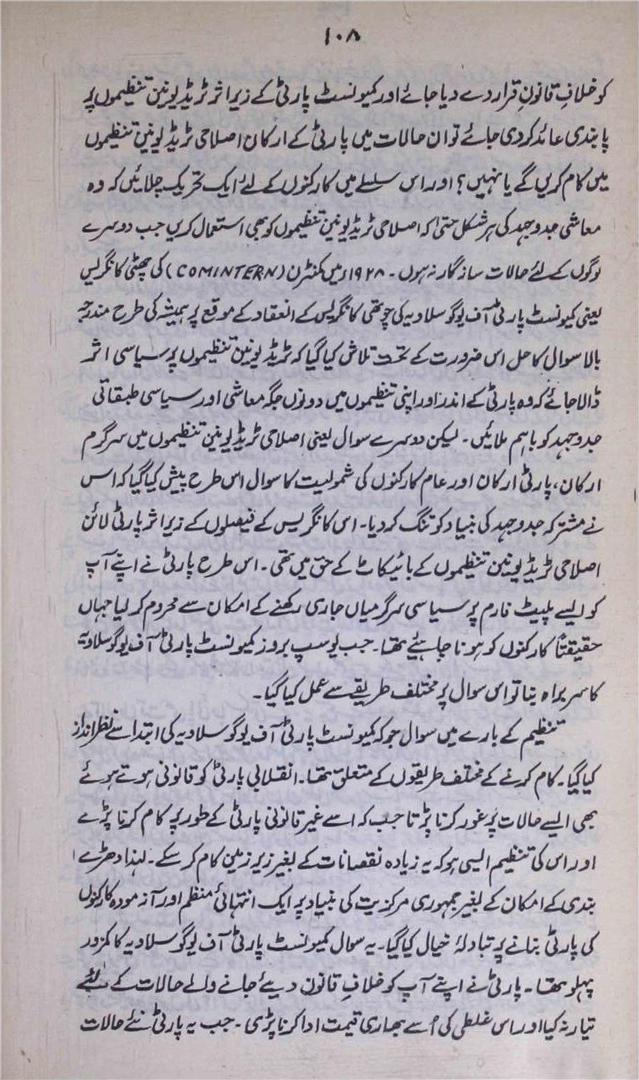 ۱۰۸
کو خلافِ قانون قرار دے دیا جائے اور کمیونسٹ پارٹی کے زیرِ اثر ٹریڈ یونین تنظیموں پر
پابندی عائد کر دی جائے تو ان حالات میں پارٹی کے ارکان اصلاحی ٹریڈ یونین تنظیموں
میں کام کریں گے یا نہیں؟ اور اس سلسلے میں کارکنوں کے لئے ایک تحریک چلائیں کہ وہ
معاشی جدوجہد کی ہر شکل حتیٰ کہ اصلاحی ٹریڈ یونین تنظیموں کو بھی استعمال کریں جب دوسرے
لوگوں کے لئے حالات سازگار نہ ہوں۔ ۱۹۲۸ء میں کمنٹرن (COMINTERN) کی چھٹی کانگریس
یعنی کمیونسٹ پارٹی آف یوگوسلاویہ کی چوتھی کانگریس کے انعقاد کے موقع پر ہمیشہ کی طرح مندرجہ
بالا سوال کا حل اس ضرورت کے تحت تلاش کیا گیا کہ ٹریڈ یونین تنظیموں پر سیاسی اثر
ڈالا جائے کہ وہ پارٹی کے اندر اور اپنی تنظیموں میں دونوں جگہ معاشی اور سیاسی طبقاتی
جدوجہد کو باہم ملائیں۔ لیکن دوسرے سوال یعنی اصلاحی ٹریڈ یونین تنظیموں میں سرگرم
ارکان، پارٹی ارکان اور عام کارکنوں کی شمولیت کا سوال اس طرح پیش کیا گیا کہ اس
نے مشترکہ جدوجہد کی بنیاد کو تنگ کر دیا۔ اس کانگریس کے فیصلوں کے زیرِ اثر پارٹی لائن
اصلاحی ٹریڈ یونین تنظیموں کے بائیکاٹ کے حق میں تھی۔ اس طرح پارٹی نے اپنے آپ
کو ایسے پلیٹ فارم پر سیاسی سرگرمیاں جاری رکھنے کے امکان سے محروم کر لیا جہاں
حقیقتاً کارکنوں کو ہونا چاہیئے تھا۔ جب یوسپ بروز کمیونسٹ پارٹی آف یوگوسلاویہ
کا سربراہ بنا تو اس سوال پر مختلف طریقے سے عمل کیا گیا۔
تنظیم کے بارے میں سوال جو کہ کمیونسٹ پارٹی آف یوگوسلاویہ کی ابتدا سے نظر انداز
کیا گیا۔ کام کرنے کے مختلف طریقوں کے متعلق تھا۔ انقلابی پارٹی کو قانونی ہوتے ہوئے
بھی ایسے حالات پر غور کرنا پڑتا جب کہ اسے غیر قانونی پارٹی کے طور پر کام کرنا پڑے
اور اس کی تنظیم ایسی ہو کہ یہ زیادہ نقصانات کے بغیر زیرِ زمین کام کر سکے۔ لہٰذا دھڑے
بندی کے امکان کے بغیر جمہوری مرکزیت کی بنیاد پر ایک انتہائی منظم اور آزمودہ کارکنوں
کی پارٹی بنانے پر تبادلۂ خیال کیا گیا۔ یہ سوال کمیونسٹ پارٹی آف یوگوسلاویہ کا کمزور
پہلو تھا۔ پارٹی نے اپنے آپ کو خلافِ قانون دیئے جانے والے حالات کے لئے
تیار نہ کیا اور اس غلطی کی اُسے بھاری قیمت ادا کرنا پڑی۔ جب یہ پارٹی نئے حالات